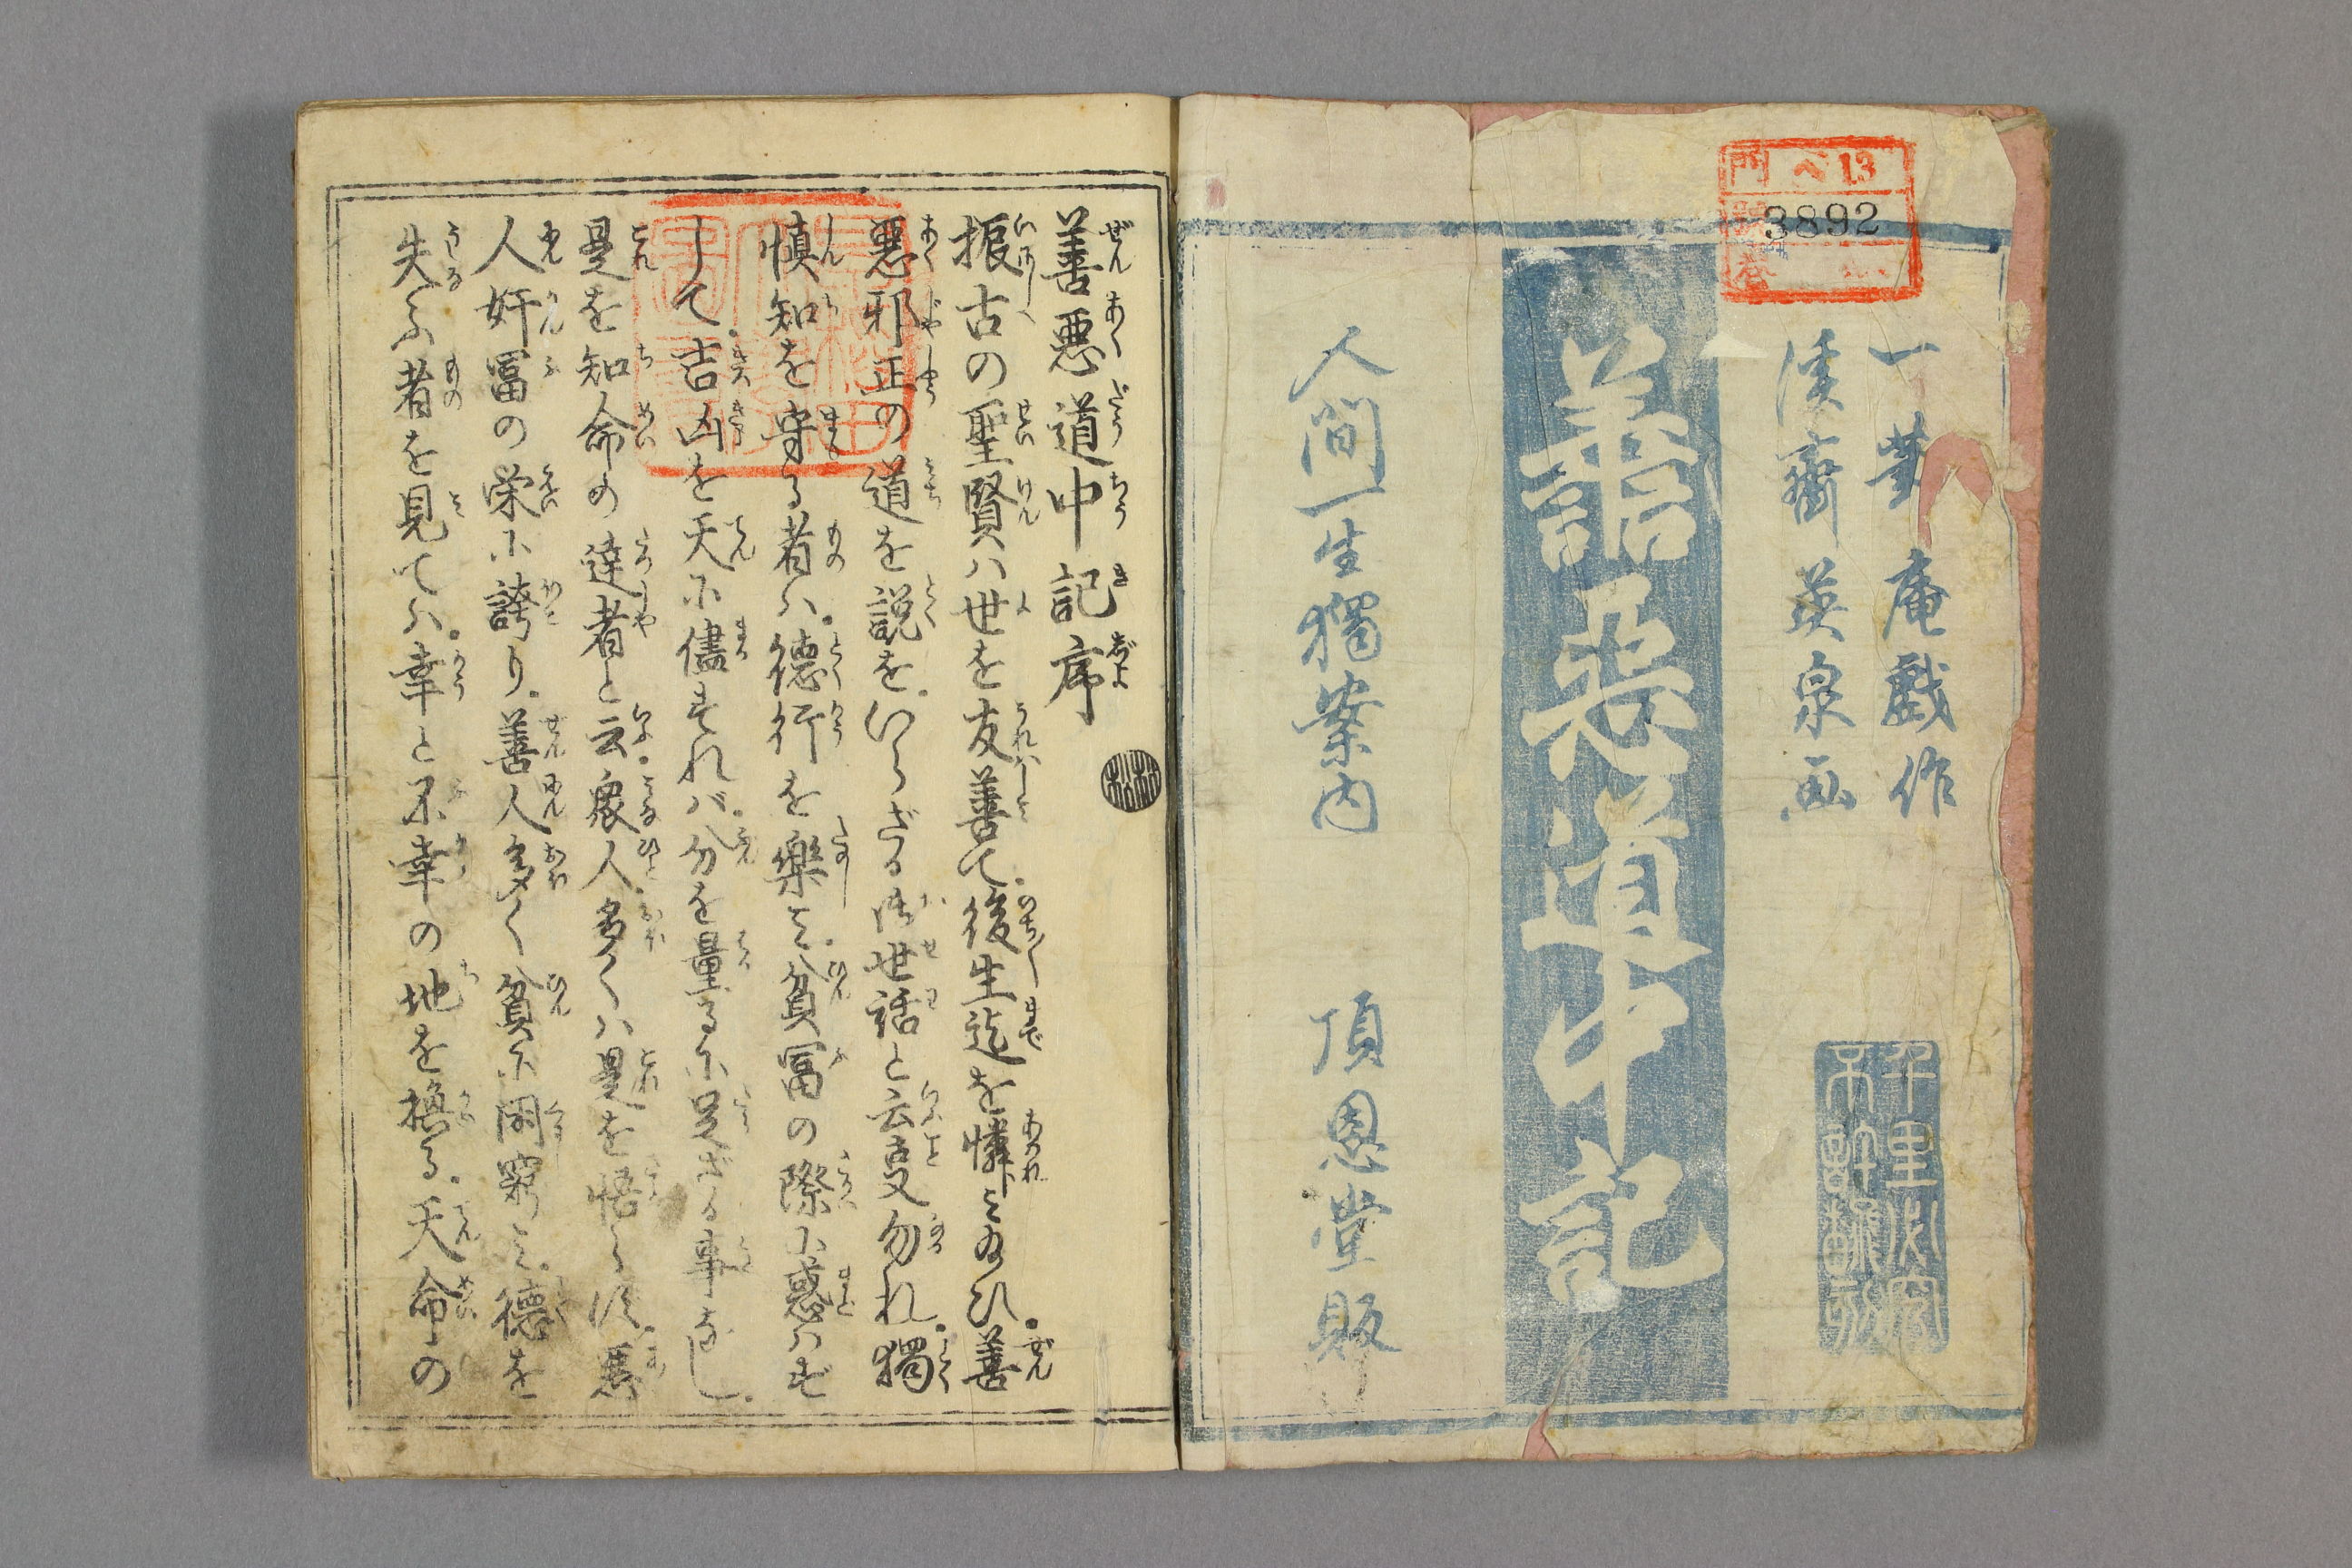 門 ヘ13
號 3892
卷
一筆庵戯作
溪齋英泉画
千里必究
不許翻刻
善悪道中記
人間一生獨案内 頂恩堂販
善悪道中記序
振古の聖賢ハ世を友善て。後生迄を憐ミ給ひ。善
悪邪正の道を説を。いらざる御世話と云事勿れ。獨
慎知を守る者ハ。徳行を樂ミ。貧冨の際に惑ハず
して。吉凶を天に儘すれバ。分を量るに足ざる事なし。
是を知命の達者と云。衆人多くハ是を悟らず。悪
人奸冨の栄に誇り。善人多く貧に困窮ミ。徳を
失ふ者を見てハ。幸と不幸の地を換る。天命の